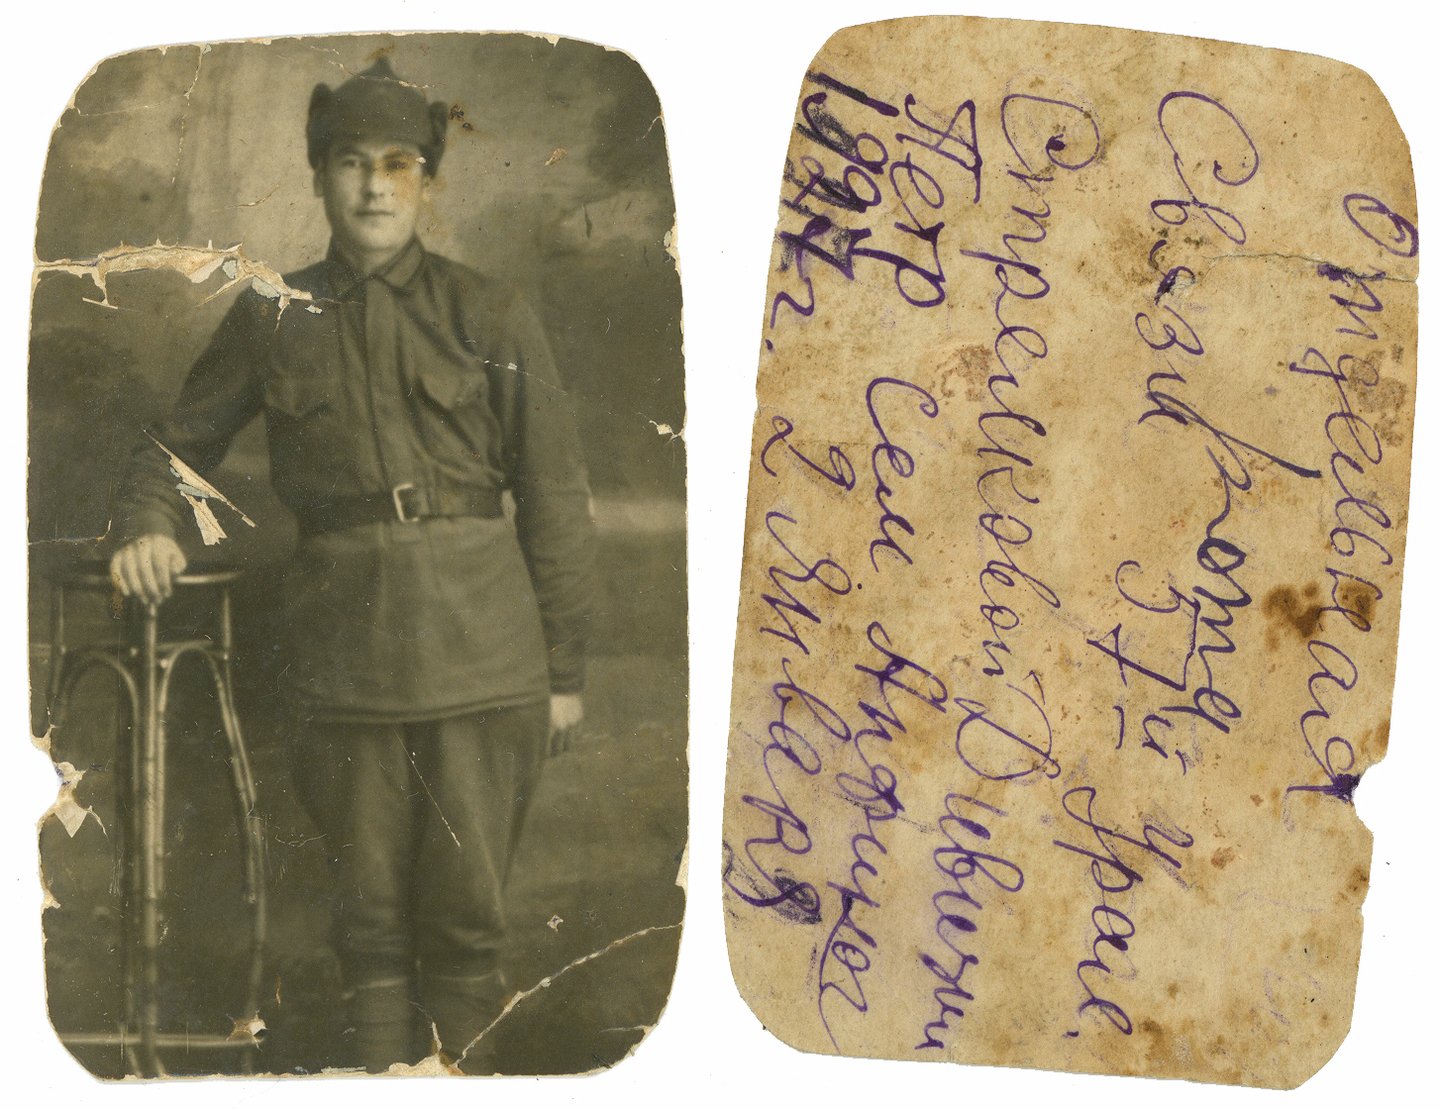 Отдельная
Связи рота
57й Урал.
Стрелковой Дивизии
Петр Сем Анфиног
29 Января